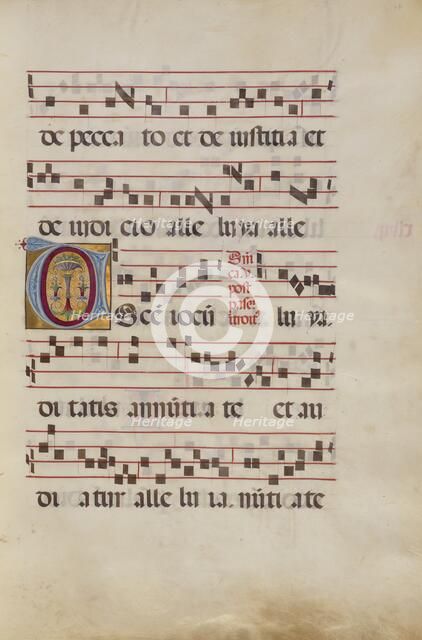 de pecca to et de iustitia et
de iudi cio alle luya alle
Dñi
ca. v.
post
pasc.
introit.
V Ocē iocū lu ya.
di tatis annūti a te et au
di atur alle lu ia. nūti a te
Heritage
Heritage
Heritage
Heritage
Heritage
Heritage